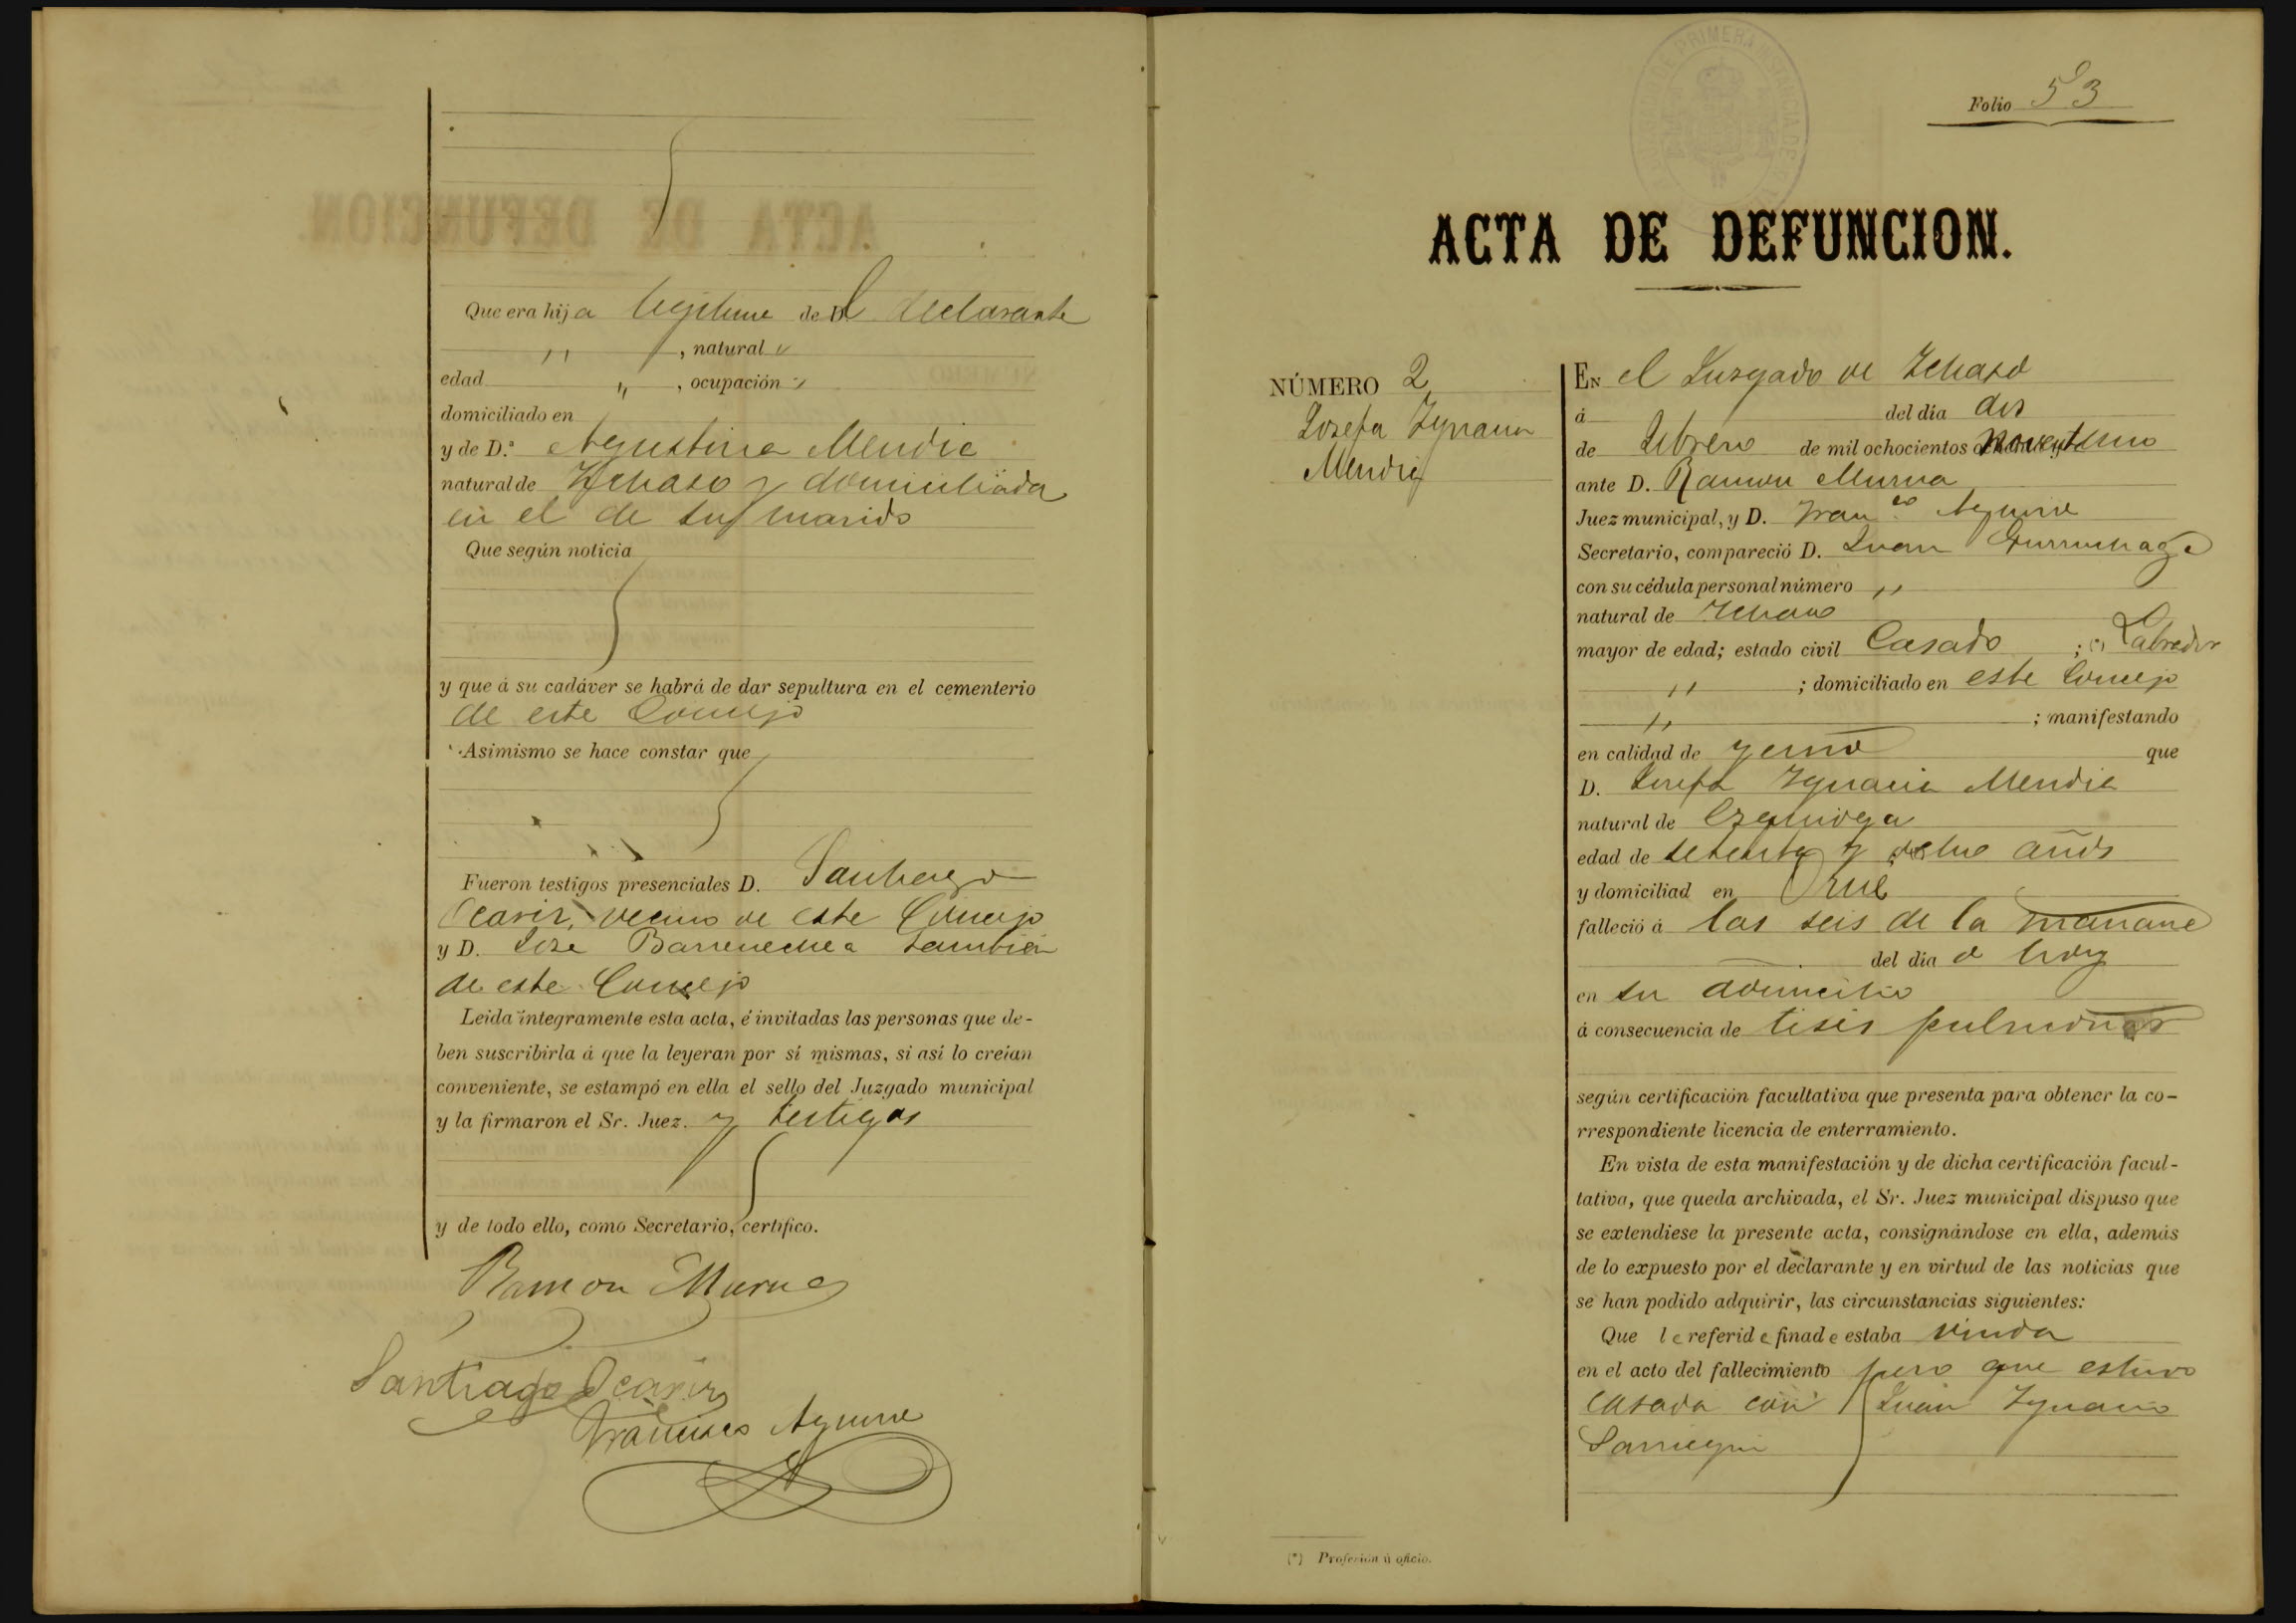 Que era hija legitima de D.l declarante
" , natural "
edad " , ocupación "
domiciliado en
y de D.ª Agustina Mendia
natural de Ychaso y domiciliada
en el de su marido
Que según noticia
y que á su cadáver se habrá de dar sepultura en el cementerio
de este Concejo
Asimismo se hace constar que
Fueron testigos presenciales D. Santiago
Ocariz, vecino de este Concejo
y D. Jose Barrenechea tambien
de este Concejo
Leida íntegramente esta acta, é invitadas las personas que de-
ben suscribirla á que la leyeran por sí mismas, si así lo creían
conveniente, se estampó en ella el sello del Juzgado municipal
y la firmaron el Sr. Juez. y testigos
y de todo ello, como Secretario, certifico.
Ramon Murua
Santiago Ocariz
Francisco Aguirre
Folio 53
ACTA DE DEFUNCION.
NÚMERO 2
Josefa Ygnacia
Mendia
EN el Juzgado de Ychaso
á del día dos
de Febrero de mil ochocientos noventiuno
ante D. Ramon Murua
Juez municipal, y D. Fran.co Aguirre
Secretario, compareció D. Juan Gurruchaga
con su cédula personal número "
natural de Ychaso
mayor de edad; estado civil Casado ; (*) Labrador
" ; domiciliado en este Concejo
" ; manifestando
en calidad de yerno que
D. Josefa Ygnacia Mendia
natural de Ezquioga
edad de setenta y años
y domiciliad en
falleció á las seis de la mañana
del día de hoy
en su domicilio
á consecuencia de tisis pulmonar
según certificación facultativa que presenta para obtener la co-
rrespondiente licencia de enterramiento.
En vista de esta manifestación y de dicha certificación facul-
tativa, que queda archivada, el Sr. Juez municipal dispuso que
se extendiese la presente acta, consignándose en ella, además
de lo expuesto por el declarante y en virtud de las noticias que
se han podido adquirir, las circunstancias siguientes:
Que la referida finada estaba viuda
en el acto del fallecimiento pero que estuvo
casada con Juan Ygnacio
Sarriegui
(*) Profesión ú oficio.